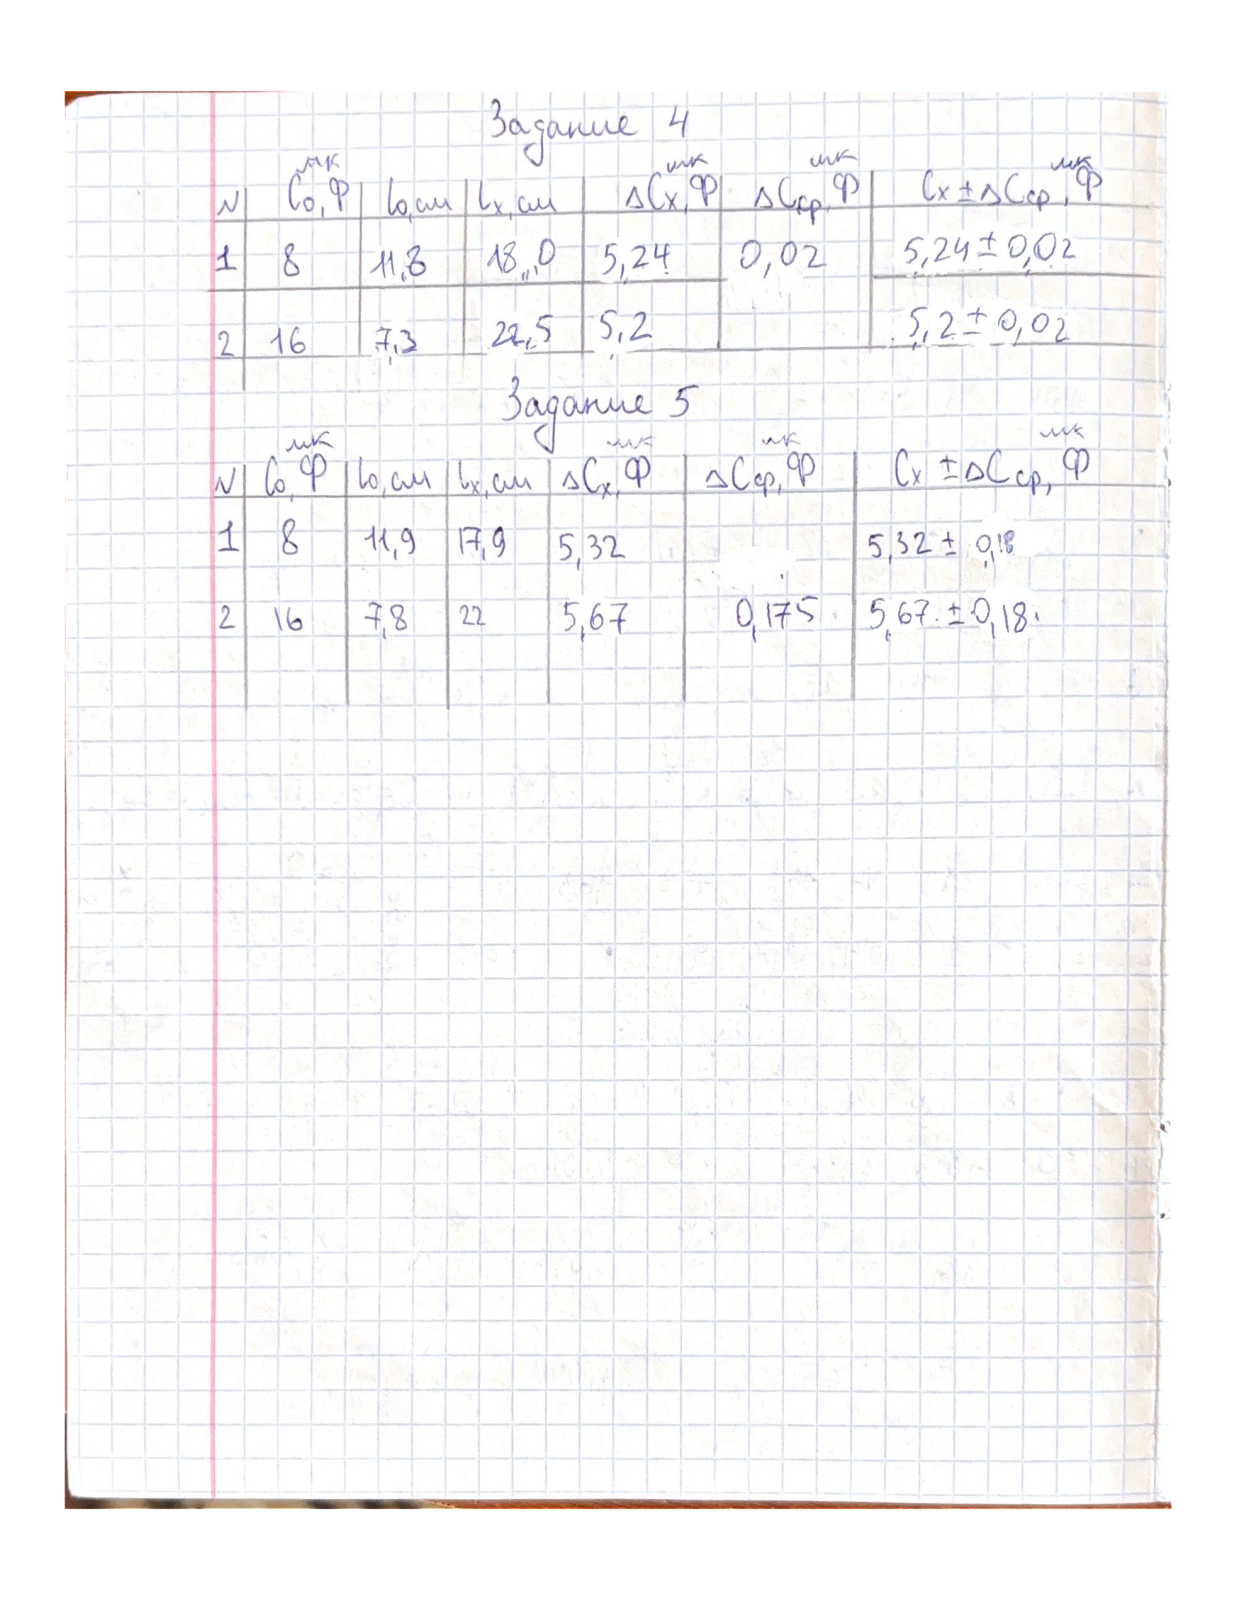 Задание 4
N C₀, мкФ l₀, см lₓ, см ΔCₓ, мкФ ΔCср, мкФ Cₓ ± ΔCср, мкФ
1 8 11,8 18,0 5,24 0,02 5,24 ± 0,02
2 16 7,3 22,5 5,2 5,2 ± 0,02
Задание 5
N C₀, мкФ l₀, см lₓ, см ΔCₓ, мкФ ΔCср, мкФ Cₓ ± ΔCср, мкФ
1 8 11,9 17,9 5,32 5,32 ± 0,18
2 16 7,8 22 5,67 0,175 5,67 ± 0,18